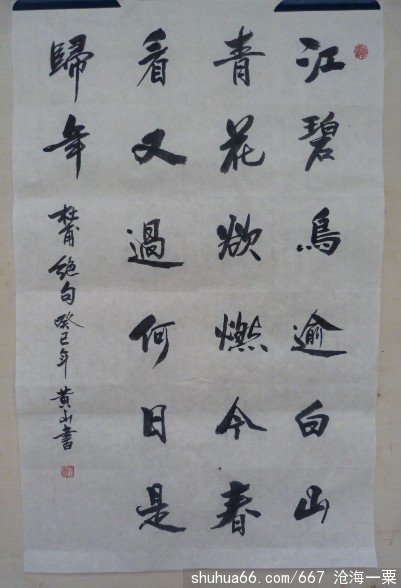 江碧鳥逾白山
青花欲燃今春
看又過何日是
歸年
杜甫絕句癸巳年黃山書
shuhua66.com/667 沧海一粟